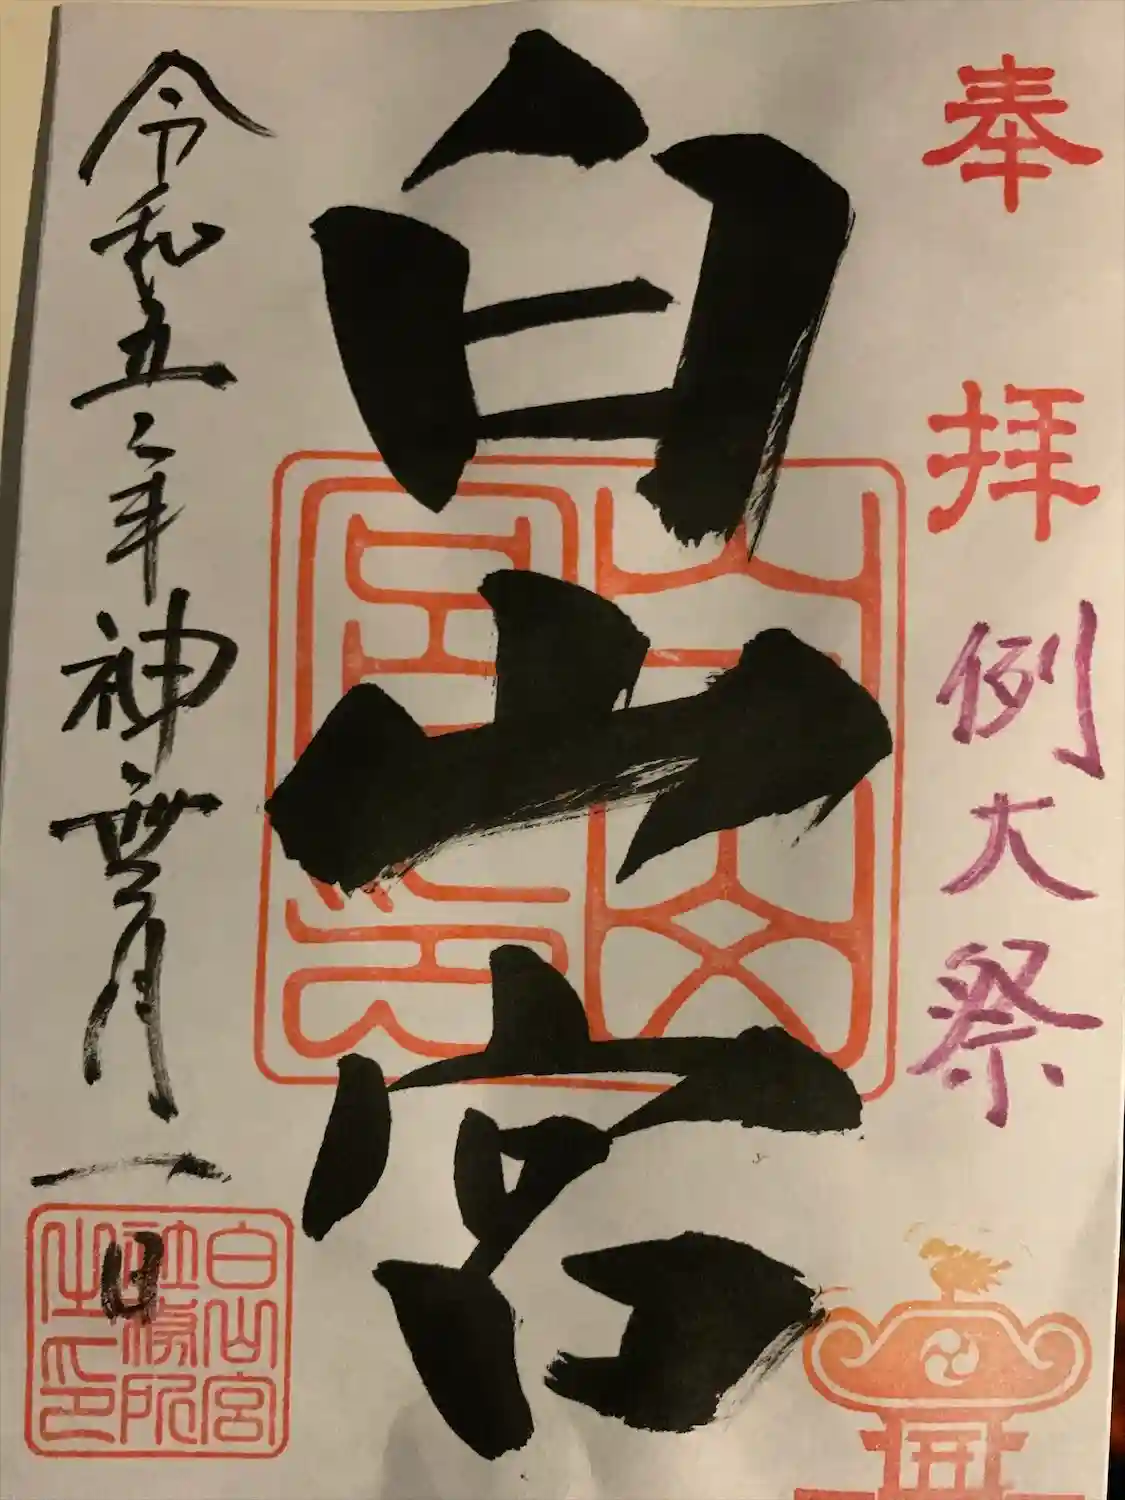 奉拝
例大祭
白山宮
令和五年神無月一日
白山宮
社務所
之印